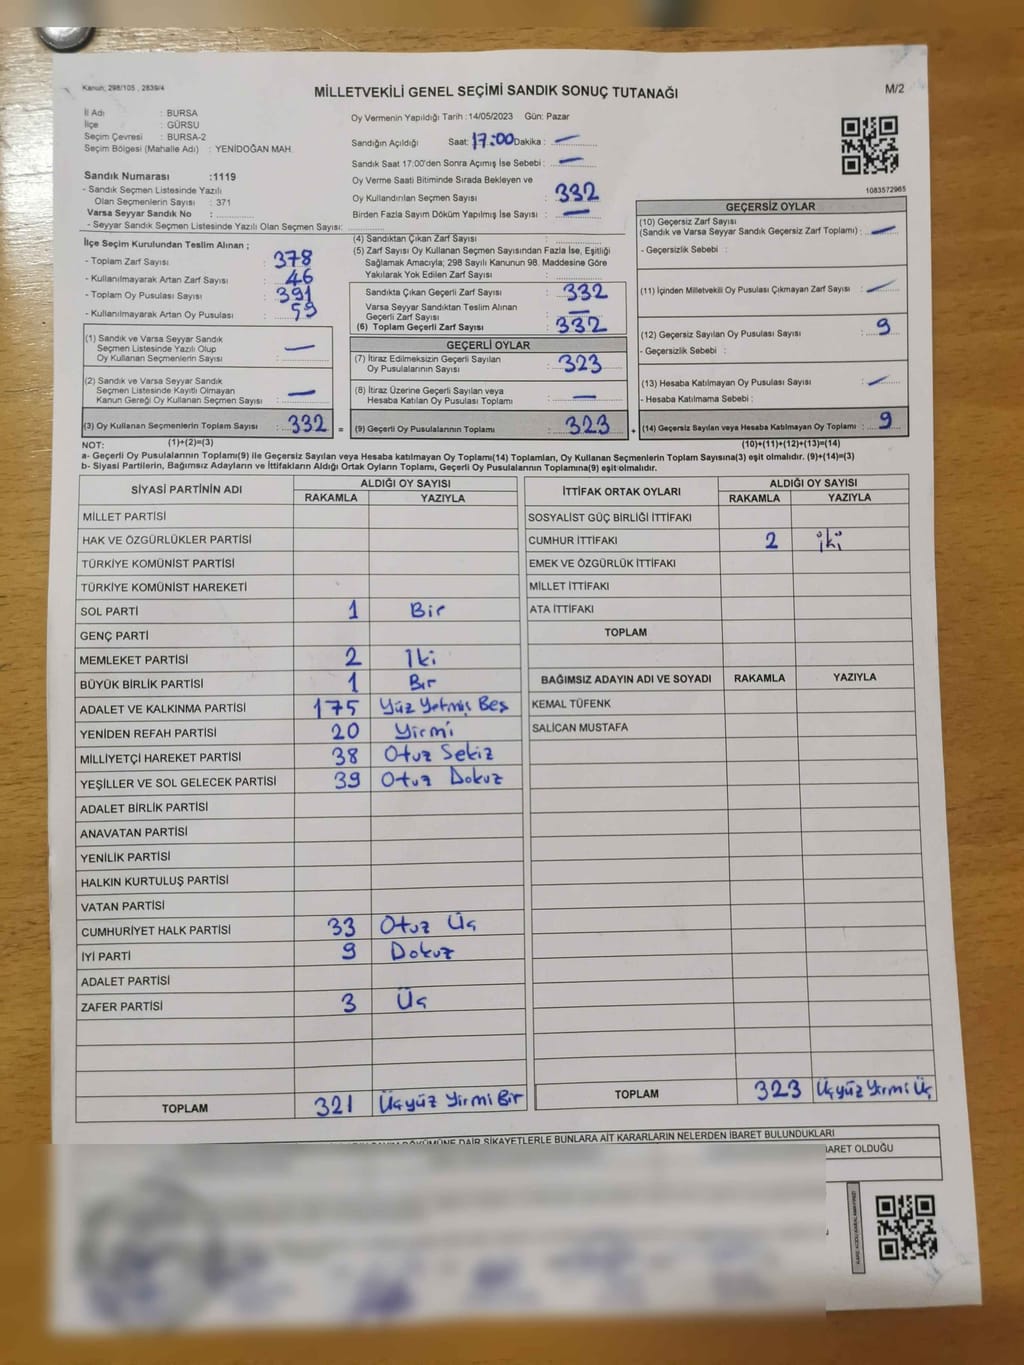 Kanun; 298/105 , 2839/4
MİLLETVEKİLİ GENEL SEÇİMİ SANDIK SONUÇ TUTANAĞI
M/2
İl Adı : BURSA
İlçe : GÜRSU
Seçim Çevresi : BURSA-2
Seçim Bölgesi (Mahalle Adı) : YENİDOĞAN MAH.
Oy Vermenin Yapıldığı Tarih : 14/05/2023 Gün: Pazar
Sandığın Açıldığı Saat: 17:00 Dakika : —
Sandık Saat 17:00'den Sonra Açımış İse Sebebi : —
Sandık Numarası :1119
- Sandık Seçmen Listesinde Yazılı
Olan Seçmenlerin Sayısı : 371
Varsa Seyyar Sandık No :
- Seyyar Sandık Seçmen Listesinde Yazılı Olan Seçmen Sayısı:
Oy Verme Saati Bitiminde Sırada Bekleyen ve
Oy Kullandırılan Seçmen Sayısı : 332
Birden Fazla Sayım Döküm Yapılmış İse Sayısı : —
1083572965
İlçe Seçim Kurulundan Teslim Alınan ;
- Toplam Zarf Sayısı : 378
- Kullanılmayarak Artan Zarf Sayısı : 46
- Toplam Oy Pusulası Sayısı : 391
- Kullanılmayarak Artan Oy Pusulası : 59
(1) Sandık ve Varsa Seyyar Sandık
Seçmen Listesinde Yazılı Olup
Oy Kullanan Seçmenlerin Sayısı : —
(2) Sandık ve Varsa Seyyar Sandık
Seçmen Listesinde Kayıtlı Olmayan
Kanun Gereği Oy Kullanan Seçmen Sayısı : —
(3) Oy Kullanan Seçmenlerin Toplam Sayısı : 332 =
(1)+(2)=(3)
(4) Sandıktan Çıkan Zarf Sayısı :
(5) Zarf Sayısı Oy Kullanan Seçmen Sayısından Fazla İse, Eşitliği
Sağlamak Amacıyla; 298 Sayılı Kanunun 98. Maddesine Göre
Yakılarak Yok Edilen Zarf Sayısı :
Sandıkta Çıkan Geçerli Zarf Sayısı : 332
Varsa Seyyar Sandıktan Teslim Alınan
Geçerli Zarf Sayısı : —
(6) Toplam Geçerli Zarf Sayısı : 332
GEÇERLİ OYLAR
(7) İtiraz Edilmeksizin Geçerli Sayılan
Oy Pusulalarının Sayısı : 323
(8) İtiraz Üzerine Geçerli Sayılan veya
Hesaba Katılan Oy Pusulası Toplamı : —
(9) Geçerli Oy Pusulalarının Toplamı : 323 +
GEÇERSİZ OYLAR
(10) Geçersiz Zarf Sayısı
(Sandık ve Varsa Seyyar Sandık Geçersiz Zarf Toplamı) : —
- Geçersizlik Sebebi :
(11) İçinden Milletvekili Oy Pusulası Çıkmayan Zarf Sayısı : —
(12) Geçersiz Sayılan Oy Pusulası Sayısı : 9
- Geçersizlik Sebebi :
(13) Hesaba Katılmayan Oy Pusulası Sayısı : —
- Hesaba Katılmama Sebebi :
(14) Geçersiz Sayılan veya Hesaba Katılmayan Oy Toplamı : 9
(10)+(11)+(12)+(13)=(14)
NOT:
a- Geçerli Oy Pusulalarının Toplamı(9) ile Geçersiz Sayılan veya Hesaba katılmayan Oy Toplamı(14) Toplamları, Oy Kullanan Seçmenlerin Toplam Sayısına(3) eşit olmalıdır. (9)+(14)=(3)
b- Siyasi Partilerin, Bağımsız Adayların ve İttifakların Aldığı Ortak Oyların Toplamı, Geçerli Oy Pusulalarının Toplamına(9) eşit olmalıdır.
SİYASİ PARTİNİN ADI ALDIĞI OY SAYISI
RAKAMLA YAZIYLA
MİLLET PARTİSİ
HAK VE ÖZGÜRLÜKLER PARTİSİ
TÜRKİYE KOMÜNİST PARTİSİ
TÜRKİYE KOMÜNİST HAREKETİ
SOL PARTİ 1 Bir
GENÇ PARTİ
MEMLEKET PARTİSİ 2 İki
BÜYÜK BİRLİK PARTİSİ 1 Bir
ADALET VE KALKINMA PARTİSİ 175 Yüz Yetmiş Beş
YENİDEN REFAH PARTİSİ 20 Yirmi
MİLLİYETÇİ HAREKET PARTİSİ 38 Otuz Sekiz
YEŞİLLER VE SOL GELECEK PARTİSİ 39 Otuz Dokuz
ADALET BİRLİK PARTİSİ
ANAVATAN PARTİSİ
YENİLİK PARTİSİ
HALKIN KURTULUŞ PARTİSİ
VATAN PARTİSİ
CUMHURİYET HALK PARTİSİ 33 Otuz Üç
İYİ PARTİ 9 Dokuz
ADALET PARTİSİ
ZAFER PARTİSİ 3 Üç
TOPLAM 321 Üçyüz Yirmi Bir
İTTİFAK ORTAK OYLARI ALDIĞI OY SAYISI
RAKAMLA YAZIYLA
SOSYALİST GÜÇ BİRLİĞİ İTTİFAKI
CUMHUR İTTİFAKI 2 iki
EMEK VE ÖZGÜRLÜK İTTİFAKI
MİLLET İTTİFAKI
ATA İTTİFAKI
TOPLAM
BAĞIMSIZ ADAYIN ADI VE SOYADI RAKAMLA YAZIYLA
KEMAL TÜFENK
SALİCAN MUSTAFA
TOPLAM 323 Üçyüz Yirmi Üç
DÖKÜMÜNE DAİR ŞİKAYETLERLE BUNLARA AİT KARARLARIN NELERDEN İBARET BULUNDUKLARI
İBARET OLDUĞU